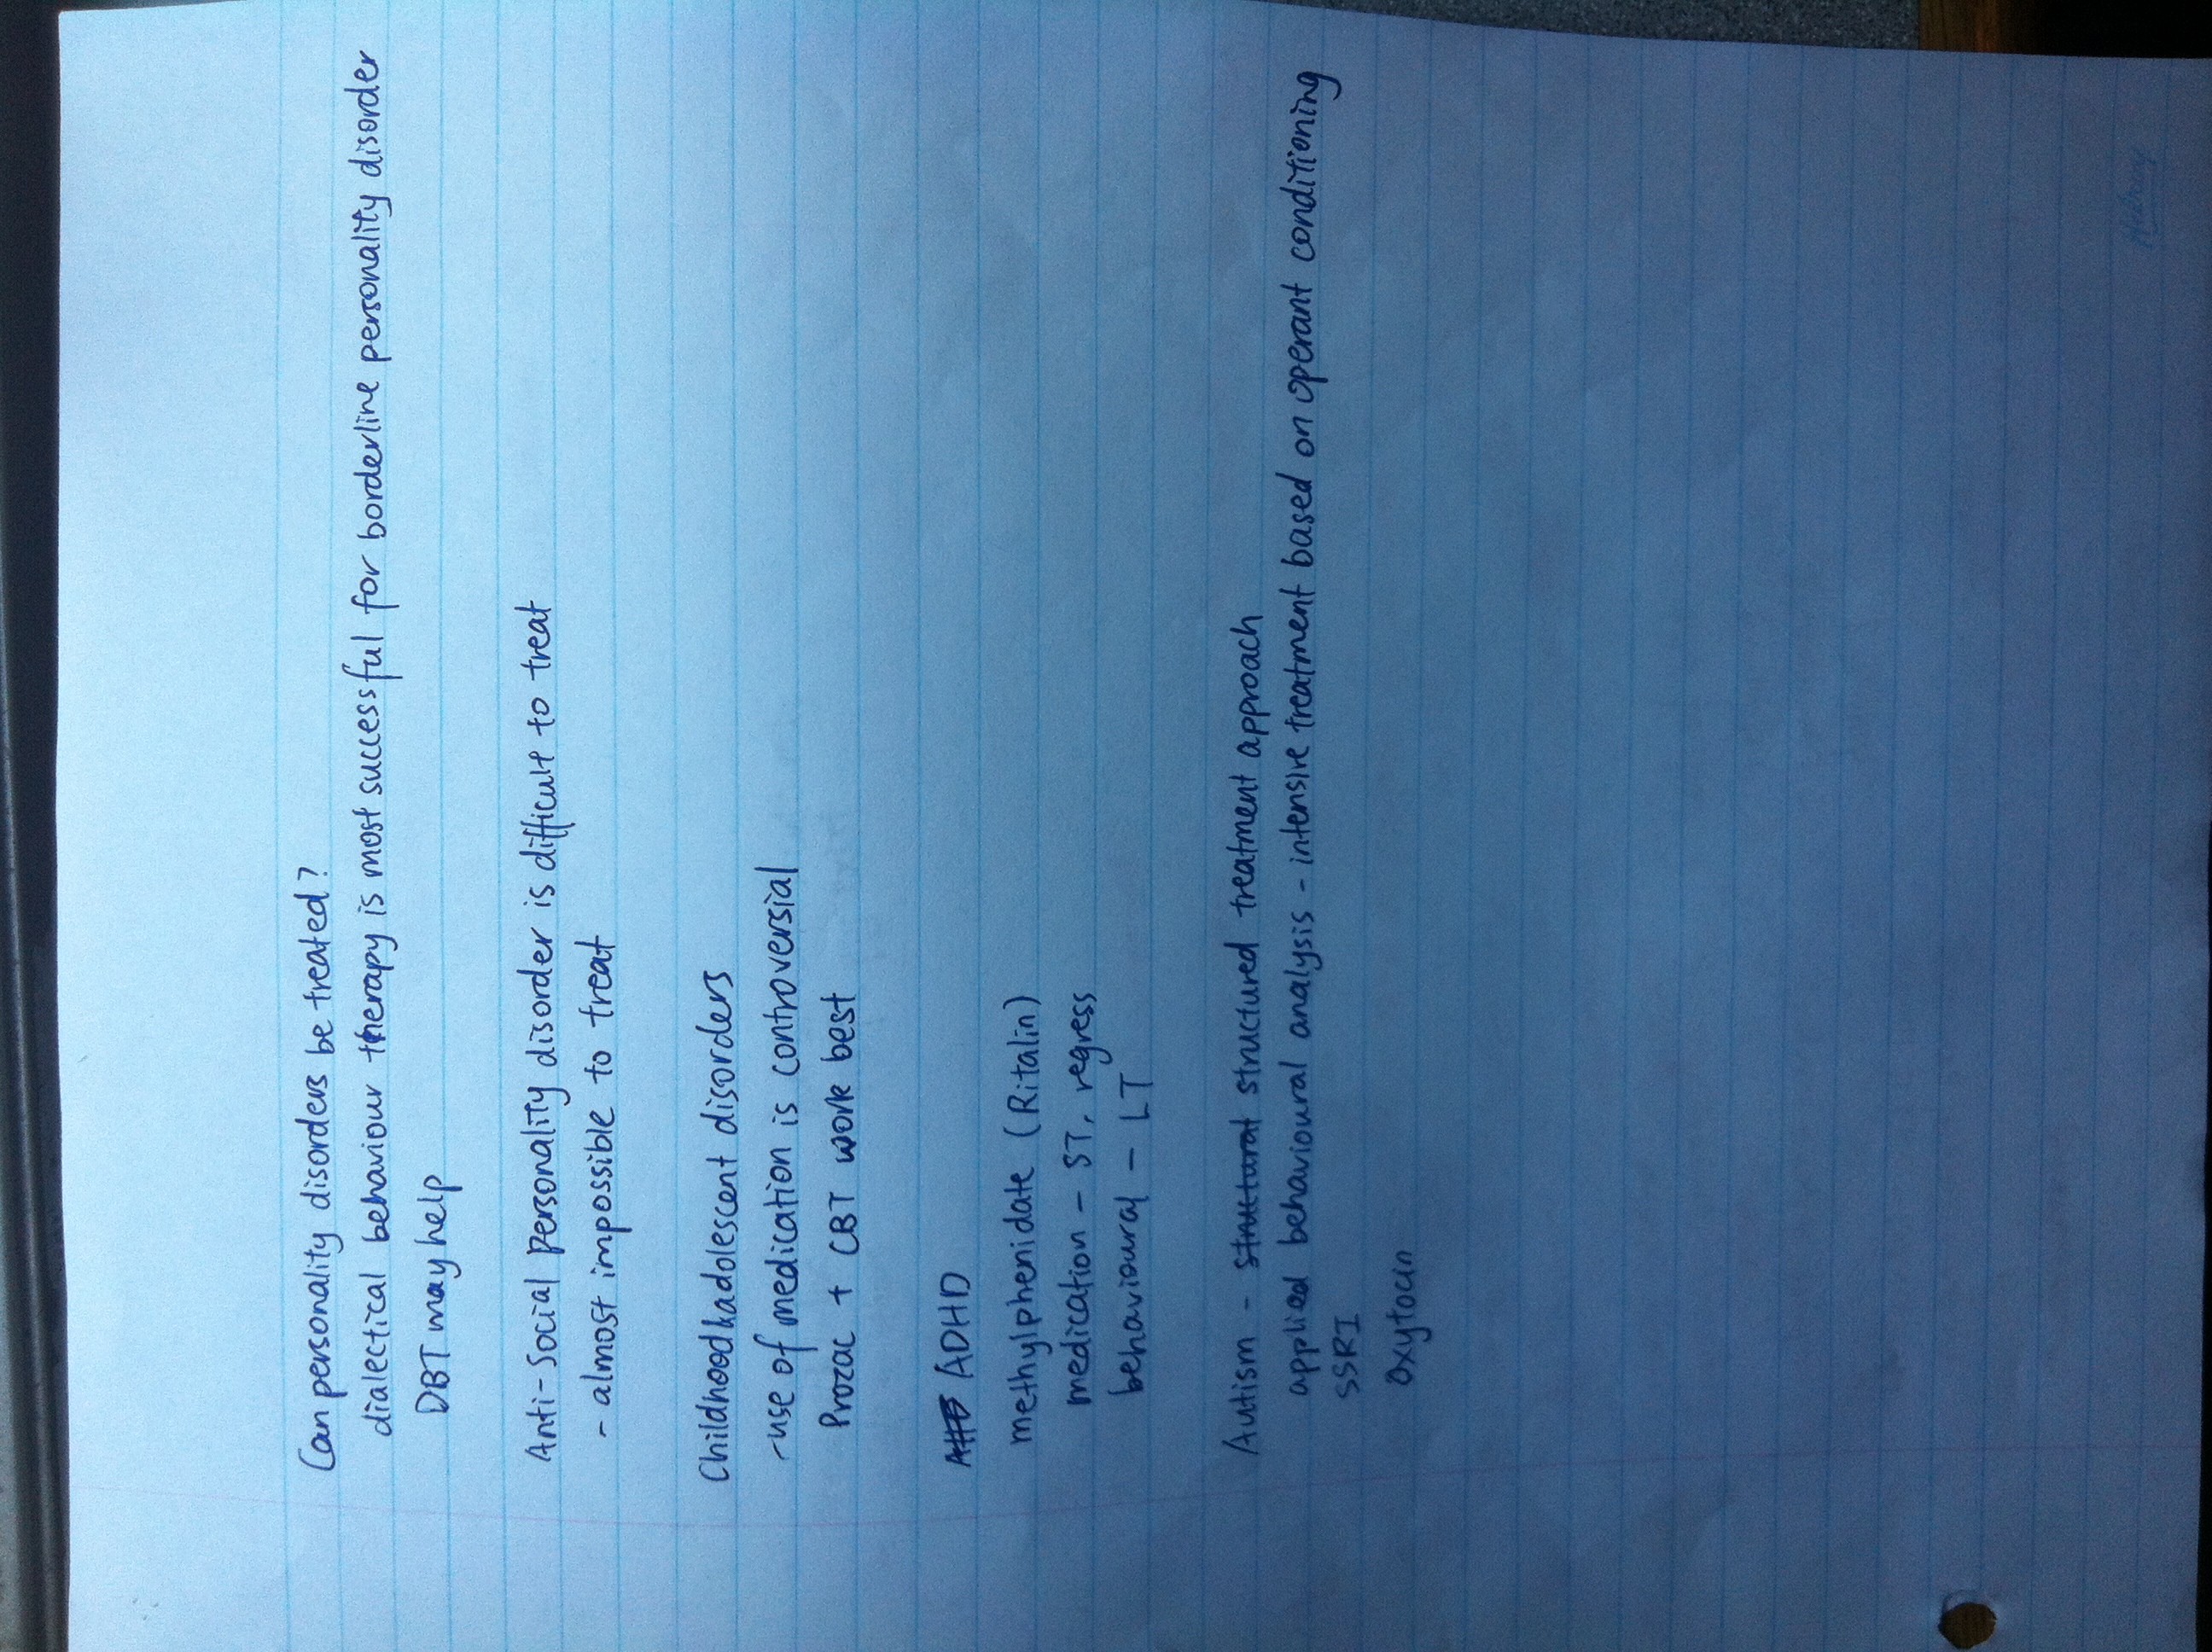 Can personality disorders be treated?
dialectical behaviour therapy is most successful for borderline personality disorder
DBT may help
Anti-Social Personality disorder is difficult to treat
- almost impossible to treat
Childhood & adolescent disorders
- use of medication is controversial
Prozac + CBT work best
ADHD
methylphenidate (Ritalin)
medication - ST, regress
behavioural - LT
Autism - structural structured treatment approach
applied behavioural analysis - intensive treatment based on operant conditioning
SSRI
Oxytocin